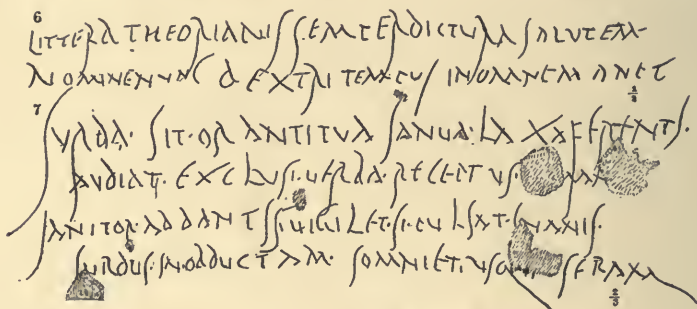 6
LITTERA THEORIANIS SEMPER DICTVRA SALVTEM
NOMINE NVNC DEXTRI TEMPVS IN OMNE MANET
7
SVRDA· SIT· ORANTI TVA IANVA· LAXA FERENTI·
AVDIAT· EXCLVSI· VERBA· RECEPTVS·
IANITOR· AD DANTIS VIGILET· SI PVLSAT· INANIS·
SVRDVS· IN OBDVCTAM· SOMNIET· SERAM